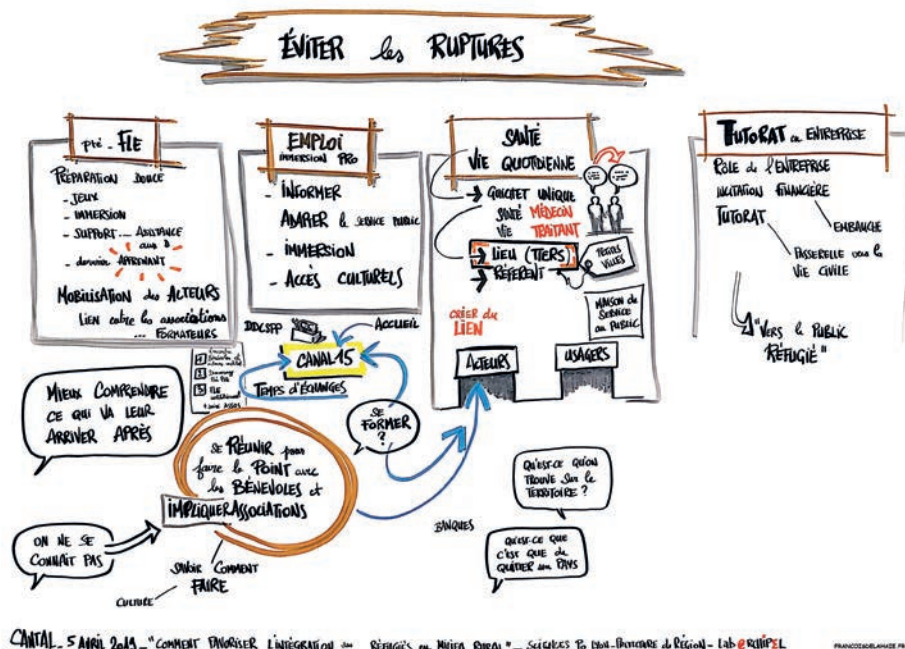 ÉVITER les RUPTURES
pré-FLE
PRÉPARATION DOUCE
- JEUX
- IMMERSION
- SUPPORT ... ASSISTANCE
- dernier APPRENANT
MOBILISATION des ACTEURS
LIEN entre les associations
... FORMATEURS
EMPLOI
IMMERSION PRO
- INFORMER
ADAPTER le SERVICE PUBLIC
- IMMERSION
- ACCÈS CULTURELS
SANTÉ
VIE QUOTIDIENNE
GUICHET UNIQUE
SANTÉ MÉDECIN
VIE TRAITANT
LIEU (TIERS)
RÉFÉRENT
PETITES
VILLES
MAISON de
SERVICE
au PUBLIC
CRÉER du
LIEN
ACTEURS
USAGERS
TUTORAT en ENTREPRISE
RÔLE de l'ENTREPRISE
INCITATION FINANCIÈRE
TUTORAT
EMBAUCHE
PASSERELLE vers la
VIE CIVILE
"VERS le PUBLIC
RÉFUGIÉ"
DDCSPP
ACCUEIL
CANAL 15
TEMPS D'ÉCHANGES
SE
FORMER
?
MIEUX COMPRENDRE
CE QUI VA LEUR
ARRIVER APRÈS
SE RÉUNIR pour
faire le POINT avec
les BÉNÉVOLES et
IMPLIQUER ASSOCIATIONS
ON NE SE
CONNAIT PAS
SAVOIR COMMENT
FAIRE
CULTURE
BANQUES
QU'EST-CE QU'ON
TROUVE SUR le
TERRITOIRE ?
QU'EST-CE QUE
C'EST QUE de
QUITTER son PAYS
CANTAL - 5 AVRIL 2019 - "COMMENT FAVORISER L'INTÉGRATION des RÉFUGIÉS en MILIEU RURAL" - SCIENCES Po LYON - PRÉFECTURE de RÉGION - Lab @RCHIPEL
FRANCOISDELAMAZE.FR